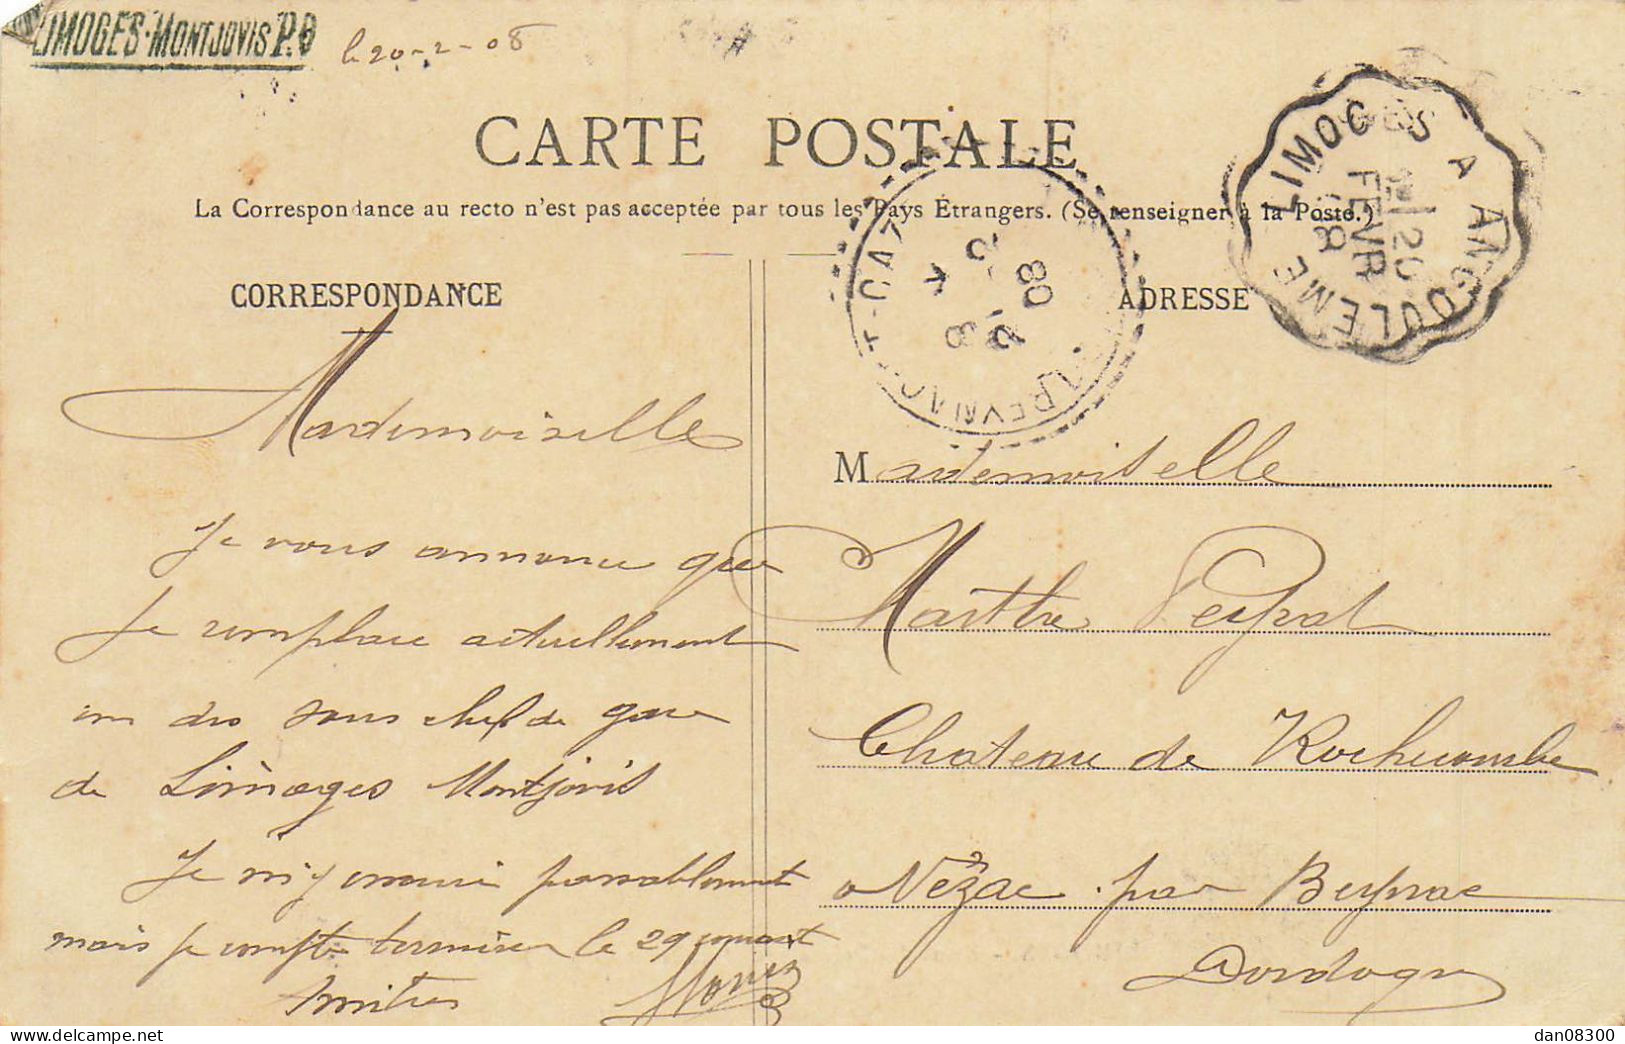 LIMOGES-MONTJOVIS P.
le 20-2-08
CARTE POSTALE
La Correspondance au recto n'est pas acceptée par tous les Pays Étrangers. (Se renseigner à la Poste.)
CORRESPONDANCE
ADRESSE
LIMOGES A ANGOULEME
20
FEVR
08
Mademoiselle
Je vous annonce que
je remplace actuellement
un des sous chef de gare
de Limoges Montjovis
Je m'y ennuie passablement
mais je compte terminer le 29 courant
Amitiés
Mademoiselle
Marthe Peyrat
Chateau de Rochecombe
Vézac par Beynac
Dordogne
dan08300